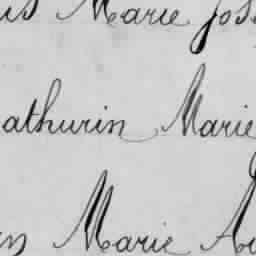 us Marie Jos
athurin Marie
en Marie Au